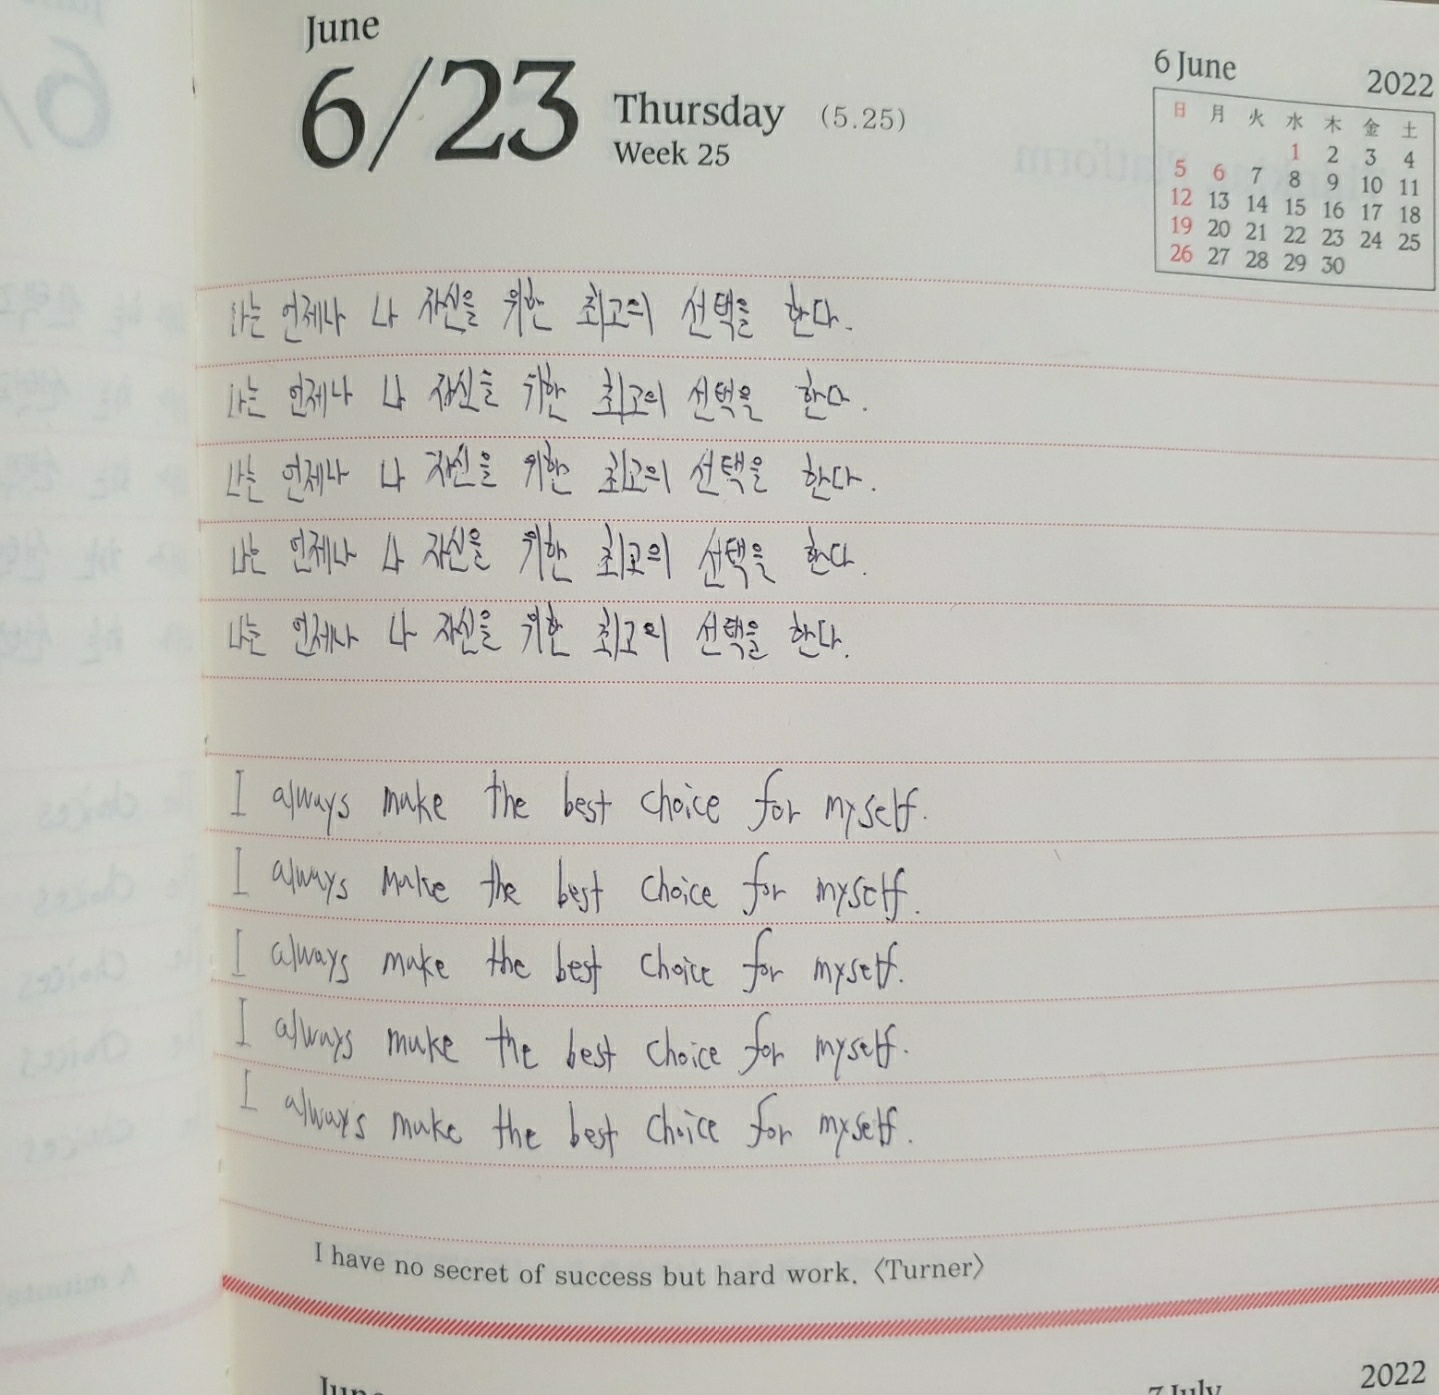 June
6/23 Thursday (5.25)
Week 25
6 June 2022
日 月 火 水 木 金 土
1 2 3 4
5 6 7 8 9 10 11
12 13 14 15 16 17 18
19 20 21 22 23 24 25
26 27 28 29 30
나는 언제나 나 자신을 위한 최고의 선택을 한다.
나는 언제나 나 자신을 위한 최고의 선택을 한다.
나는 언제나 나 자신을 위한 최고의 선택을 한다.
나는 언제나 나 자신을 위한 최고의 선택을 한다.
나는 언제나 나 자신을 위한 최고의 선택을 한다.
I always make the best choice for myself.
I always make the best choice for myself.
I always make the best choice for myself.
I always make the best choice for myself.
I always make the best choice for myself.
I have no secret of success but hard work. 〈Turner〉
June
7 July 2022